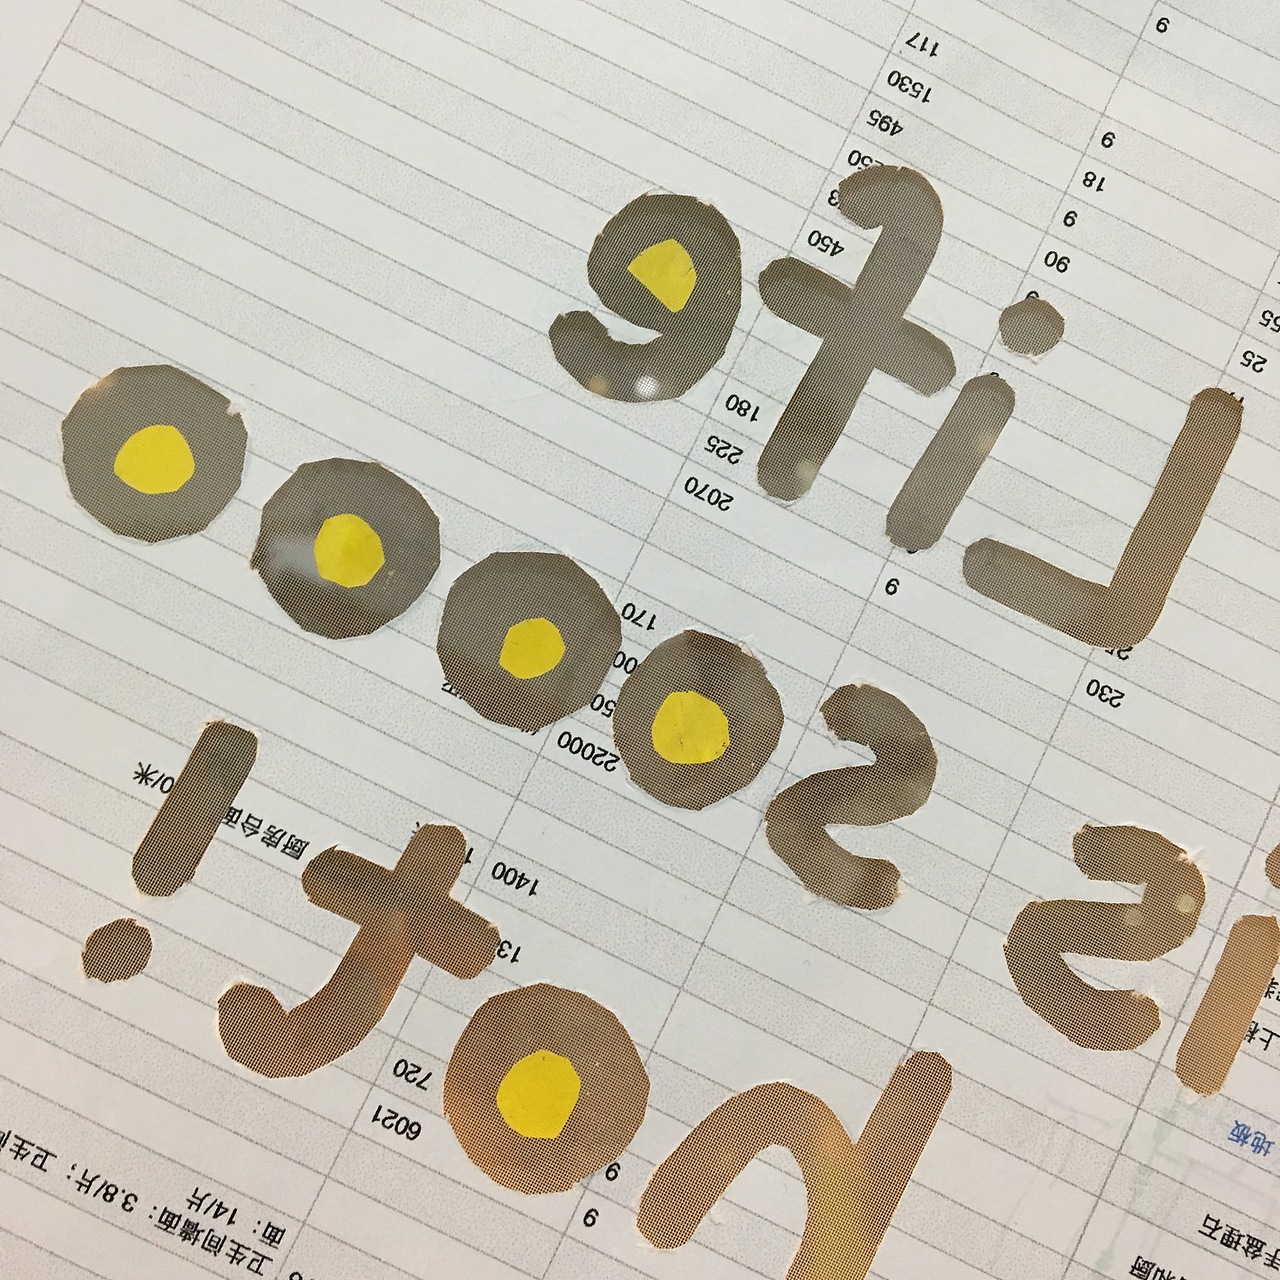 Life
is
soooo
hot!
117
1530
495
450
180
225
2070
170
22000
1400
720
6021
9
9
18
9
90
9
230
25
9
9
厨房台面
地板
卫生间墙面：3.8/片；卫生间
面：14/片